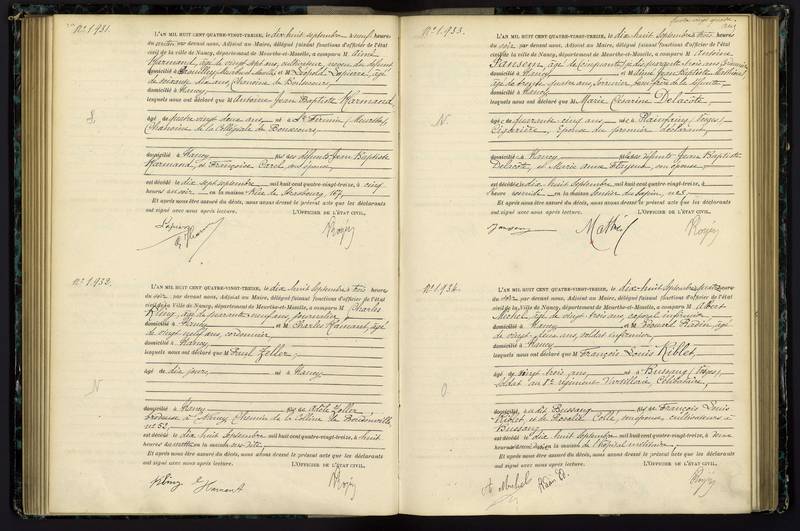 N° 1931.
L'AN MIL HUIT CENT QUATRE-VINGT-TREIZE, le dix huit septembre à neuf heures
du matin par devant nous, Adjoint au Maire, délégué faisant fonctions d'officier de l'état
civil de la ville de Nancy, département de Meurthe-et-Moselle, a comparu M. Aimé
Harmand, âgé de vingt sept ans, cultivateur, neveu du défunt
domicilié à et M. Léopold Lapierre, âgé
de soixante dix ans, Chanoine de Bonsecours,
domicilié à Nancy
lesquels nous ont déclaré que M. Antoine Jean Baptiste Harmand,
âgé de quatre vingt deux ans, né à St Firmin (Meurthe),
Chanoine de la Collégiale de Bonsecours,
domicilié à Nancy fils des défunts Jean Baptiste
Harmand, et Françoise Carel son épouse,
est décédé le dix sept septembre mil huit cent quatre-vingt-treize, à cinq
heures du soir en la maison Rue de Strasbourg, 167,
Et après nous être assuré du décès, nous avons dressé le présent acte que les déclarants
ont signé avec nous après lecture. L'OFFICIER DE L'ÉTAT CIVIL,
Lapierre
N° 1932.
L'AN MIL HUIT CENT QUATRE-VINGT-TREIZE, le dix huit septembre à trois heures
du soir par devant nous, Adjoint au Maire, délégué faisant fonctions d'officier de l'état
civil de la Ville de Nancy, département de Meurthe-et-Moselle, a comparu M. Charles
Rémy, âgé de quarante neuf ans, journalier
domicilié à Nancy et M. Charles Hainant, âgé
de vingt neuf ans, cordonnier
domicilié à Nancy
lesquels nous ont déclaré que M. Paul Zeller,
âgé de dix jours, né à Nancy
N
domicilié à Nancy fils de Adèle Zeller
brodeuse à Nancy, Chemin de la Colline de Boudonville,
n° 53,
est décédé le dix huit septembre mil huit cent quatre-vingt-treize, à huit
heures du matin en la maison sus-dite
Et après nous être assuré du décès, nous avons dressé le présent acte que les déclarants
ont signé avec nous après lecture. L'OFFICIER DE L'ÉTAT CIVIL,
Rémy
N° 1933.
L'AN MIL HUIT CENT QUATRE-VINGT-TREIZE, le dix huit septembre à trois heures
du soir par devant nous, Adjoint au Maire, délégué faisant fonctions d'officier de l'état
civil de la ville de Nancy, département de Meurthe-et-Moselle, a comparu M. Antoine
domicilié à Nancy
domicilié à Nancy
lesquels nous ont déclaré que M. Marie Césarine Delacôte,
âgée de quarante cinq ans, née à Plainfaing, Vosges,
Cigarière, épouse du premier déclarant,
N.
domiciliée à Nancy fille des défunts Jean Baptiste
Delacôte, et Marie Anne son épouse,
est décédée le dix huit septembre mil huit cent quatre-vingt-treize, à
en la maison Sentier du Sapin, n° 5,
Et après nous être assuré du décès, nous avons dressé le présent acte que les déclarants
ont signé avec nous après lecture. L'OFFICIER DE L'ÉTAT CIVIL,
N° 1934.
L'AN MIL HUIT CENT QUATRE-VINGT-TREIZE, le dix huit septembre à heures
du soir par devant nous, Adjoint au Maire, délégué faisant fonctions d'officier de l'état
civil de la Ville de Nancy, département de Meurthe-et-Moselle, a comparu M. Albert
Michel, âgé de vingt trois ans, caporal infirmier
domicilié à Nancy et M. Édouard Radin, âgé
de vingt deux ans, soldat infirmier
domicilié à Nancy
lesquels nous ont déclaré que M. François Louis Riblet,
âgé de vingt trois ans, né à Bussang, Vosges,
soldat au 8e régiment d'artillerie, Célibataire,
O
domicilié à Bussang fils de François Louis
Riblet et de Rosalie Colle, son épouse, cultivateurs à
Bussang
est décédé le dix huit septembre mil huit cent quatre-vingt-treize, à
en la maison de l'hôpital militaire,
Et après nous être assuré du décès, nous avons dressé le présent acte que les déclarants
ont signé avec nous après lecture. L'OFFICIER DE L'ÉTAT CIVIL,
A. Michel